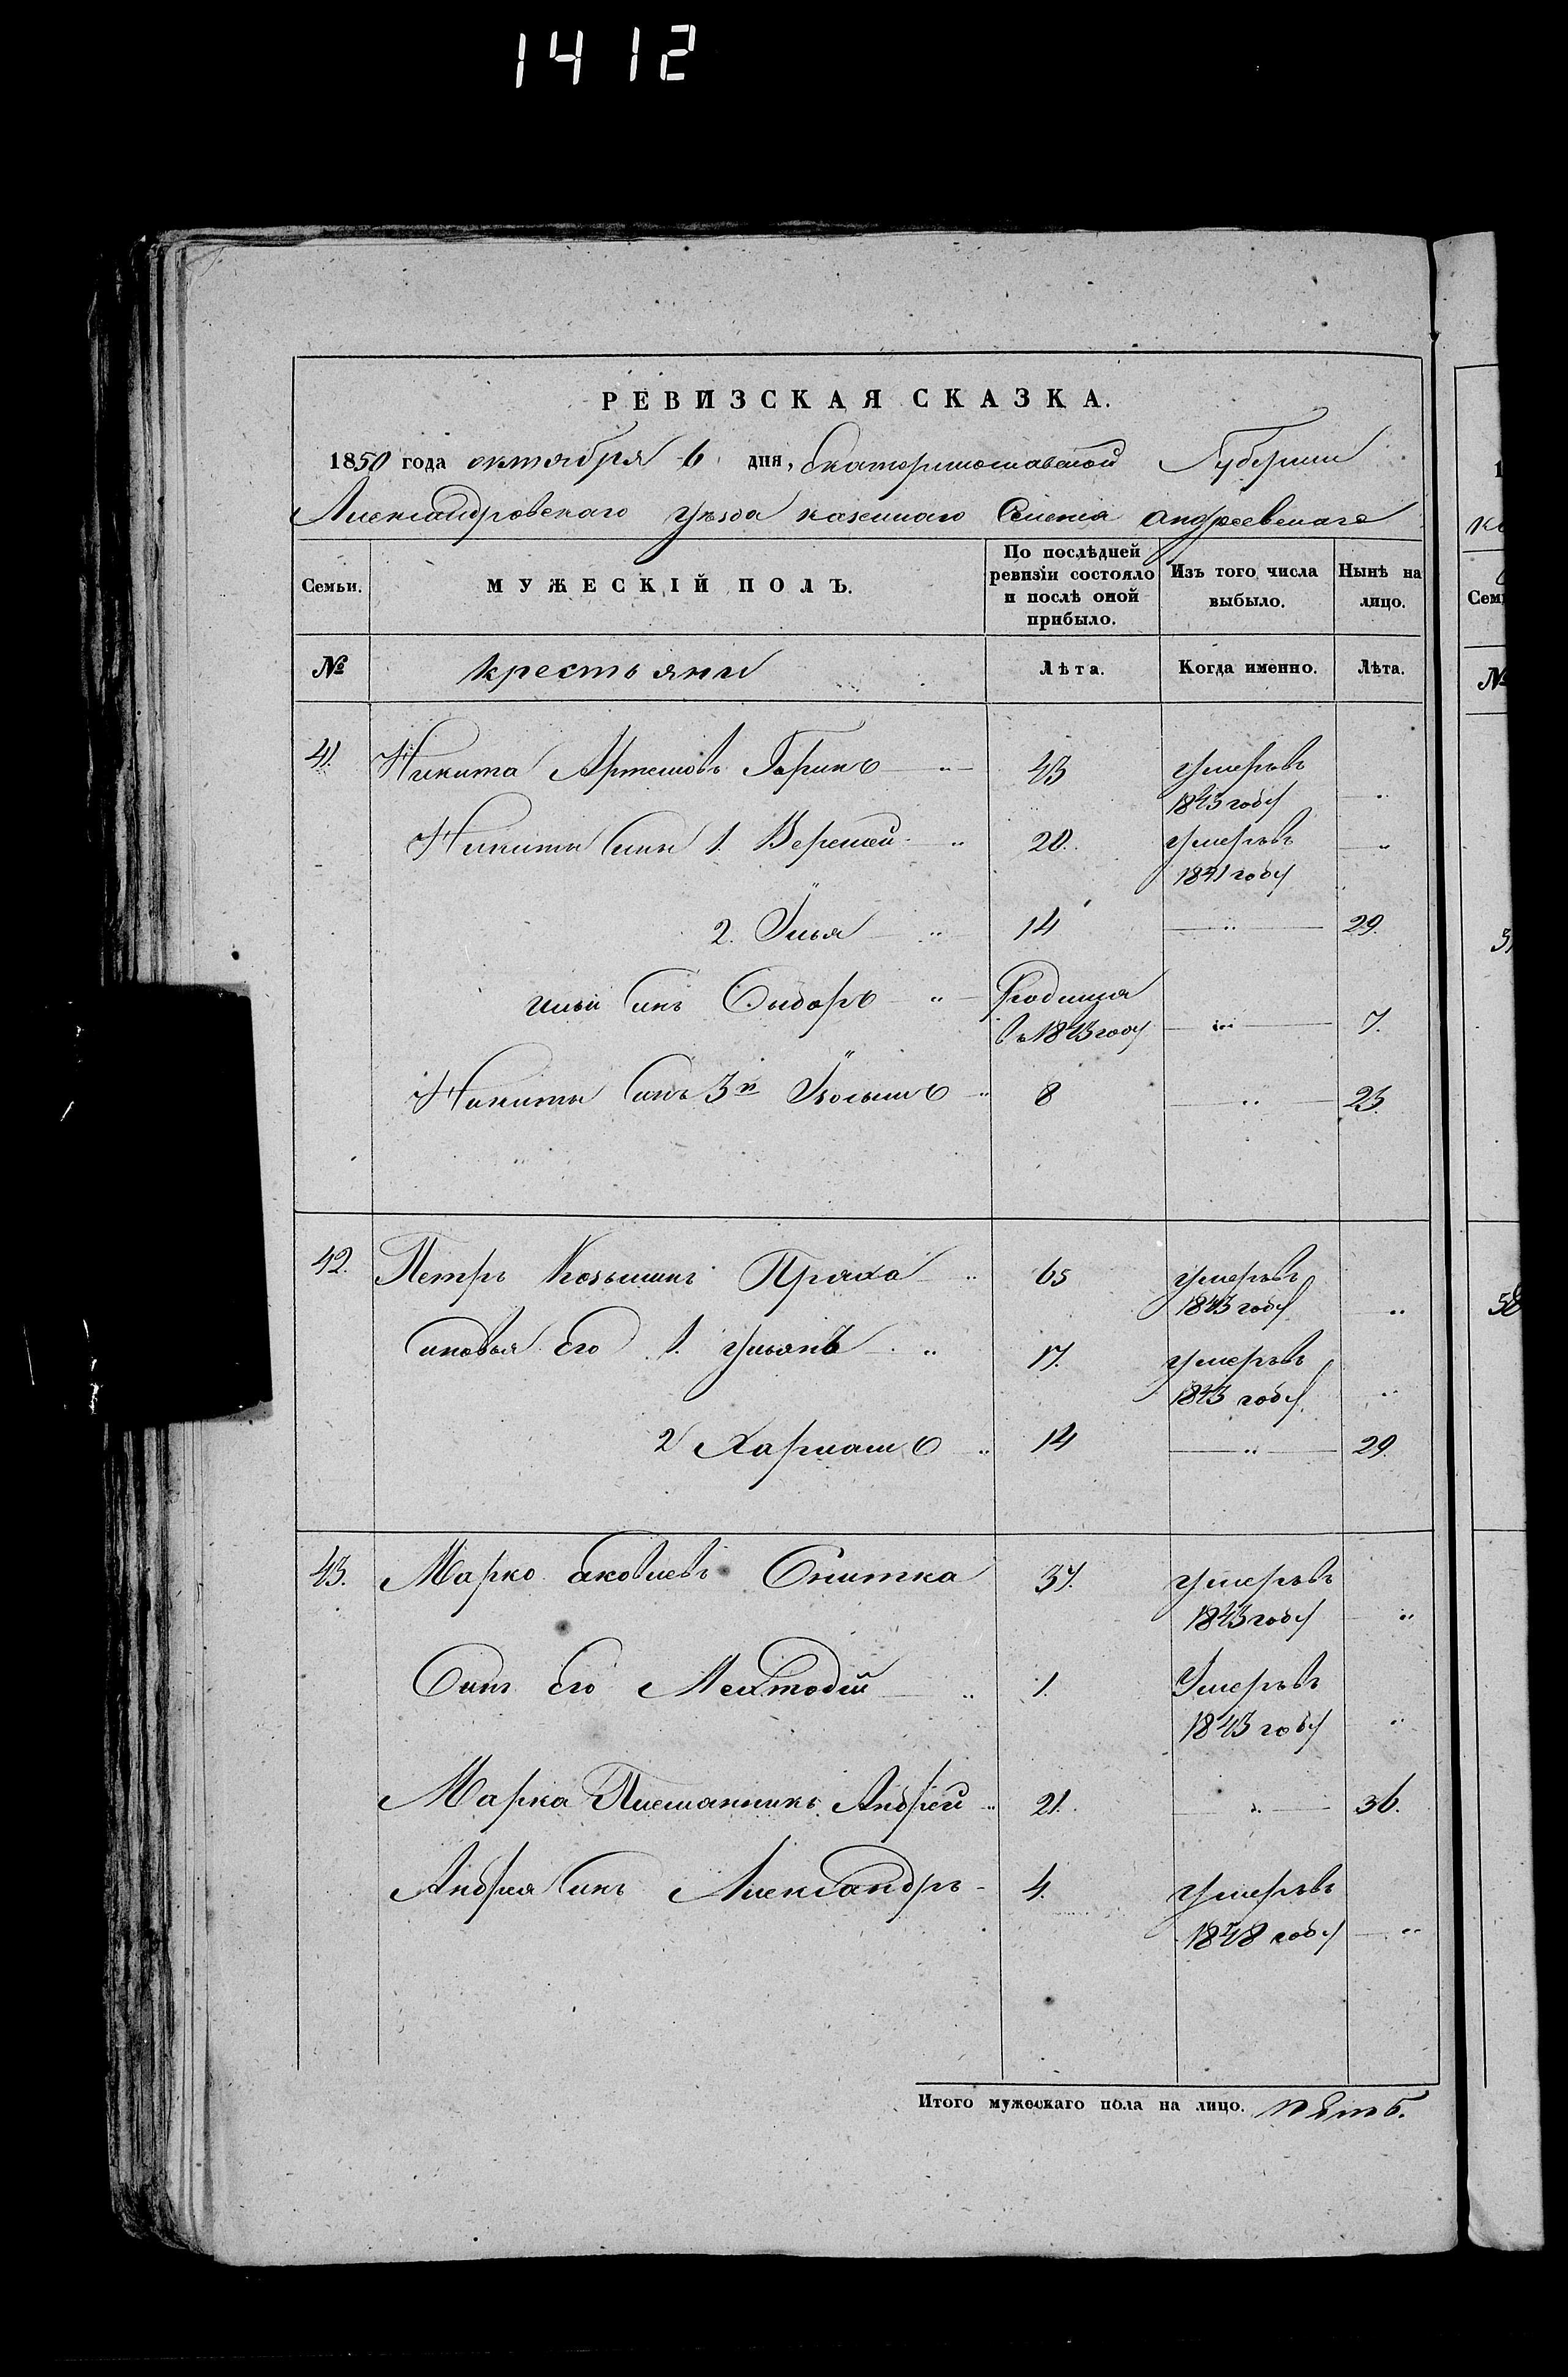 1412
РЕВИЗСКАЯ СКАЗКА.
1850 года октября 6 дня, Екатеринославской Губернии
Александровского уезда казенного Селения андреевского
Семьи. МУЖЕСКІЙ ПОЛЪ. По послѣдней ревизіи состояло и послѣ оной прибыло. Изъ того числа выбыло. Нынѣ на лицо.
№ крестьяни Лѣта. Когда именно. Лѣта.
41. Никита Артемовъ 43 умеръ въ
1843 году "
Никиты синъ 1. 20. умеръ въ
1841 году "
2. Илья " 14 " 29.
ильи синъ Сидоръ " Родился
въ 1843 году " 7.
Никиты синъ 3й " 8 " 23.
42. Петръ Козьминъ Пряха " 65 умеръ въ
1843 году "
синовья его 1. ульянъ " 17. умеръ въ
1843 году "
2 " 14 " 29.
43. Марко яковлевъ Снитка 37. умеръ въ
1843 году "
Синъ его Мехтодій " 1. Умеръ въ
1843 году "
Марка Племянникъ Андрей " 21. " 36.
Андрея синъ Александръ 4. умеръ въ
1848 году "
Итого мужескаго пола на лицо. пять.
№
58